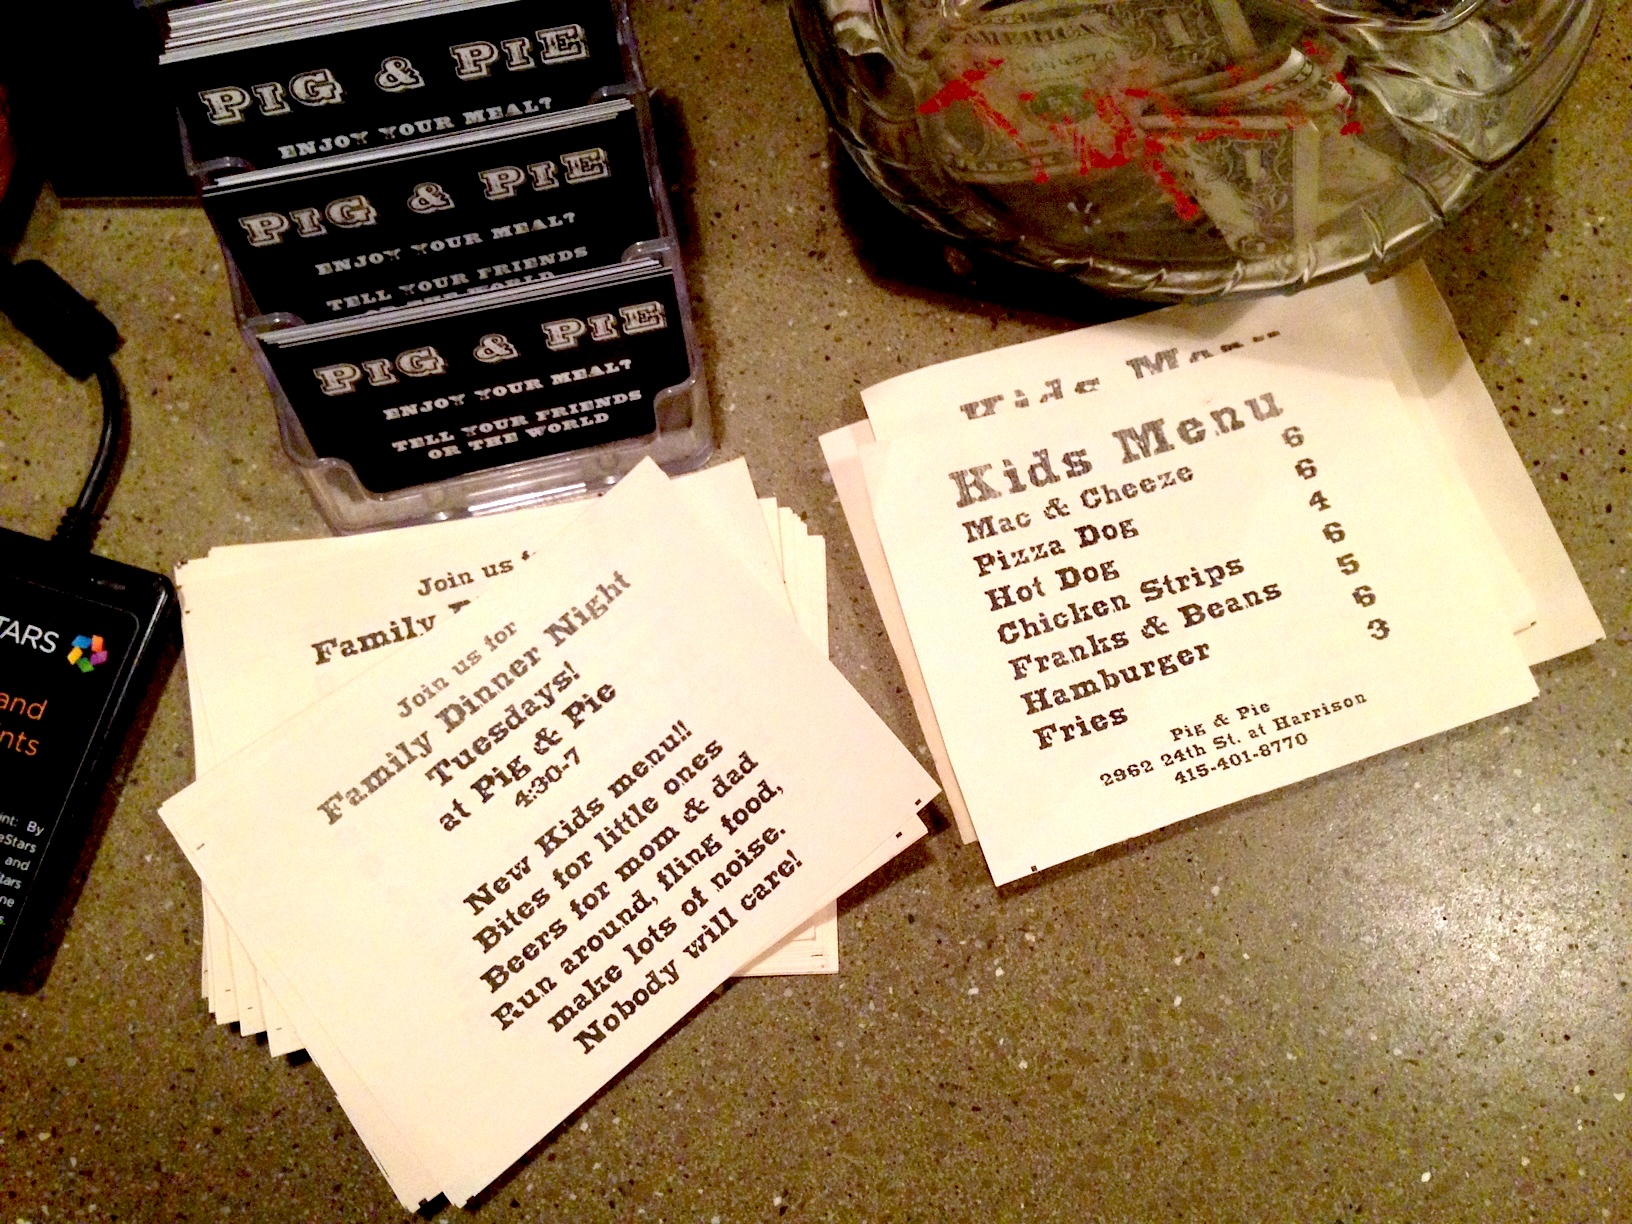 PIG & PIE
ENJOY YOUR MEAL?
PIG & PIE
ENJOY YOUR MEAL?
TELL YOUR FRIENDS
OR THE WORLD
PIG & PIE
ENJOY YOUR MEAL?
TELL YOUR FRIENDS
OR THE WORLD
AMERICA
1
1
TARS
and
nts
nt: By
eStars
and
tars
ne
s.
Join us
Family
Join us for
Family Dinner Night
Tuesdays!
at Pig & Pie
4:30-7
New Kids menu!!
Bites for little ones
Beers for mom & dad
Run around, fling food,
make lots of noise.
Nobody will care!
Kids Menu
Kids Menu
Mac & Cheeze 6
Pizza Dog 6
Hot Dog 4
Chicken Strips 6
Franks & Beans 5
Hamburger 6
Fries 3
Pig & Pie
2962 24th St. at Harrison
415-401-8770